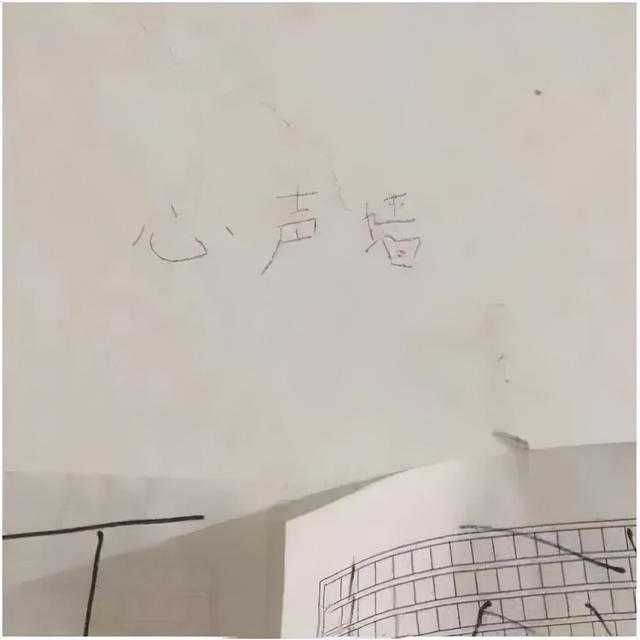 心声墙